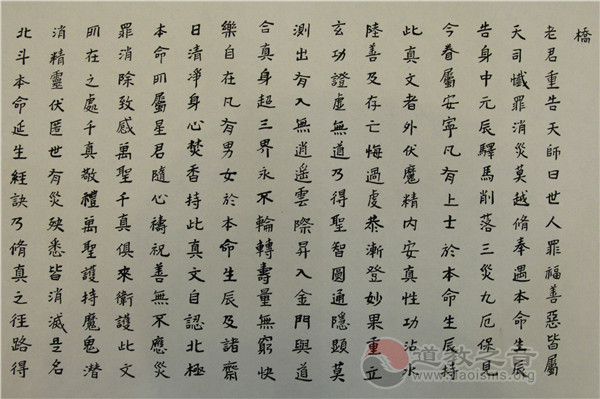 橋
老君重告天師曰世人罪福善惡皆屬
天司懺罪消災莫越脩奉遇本命生辰
告身中元辰驛馬削落三災九厄保見
今眷屬安寧凡有上士於本命生辰持
此真文者外伏魔精內安真性功沾水
陸善及存亡悔過虔恭漸登妙果重立
玄功證虛無道乃得聖智圓通隱顯莫
測出有入無逍遙雲際昇入金門與道
合真身超三界永不輪轉壽量無窮快
樂自在凡有男女於本命生辰及諸齋
日清淨身心焚香持此真文自認北極
本命所屬星君隨心禱祝善無不應災
罪消除致感萬聖千真俱來衛護此文
所在之處千真敬禮萬聖護持魔鬼潛
消精靈伏匿世有災殃悉皆消滅是名
北斗本命延生經訣乃脩真之徑路得
道教之音
www.daoisms.org